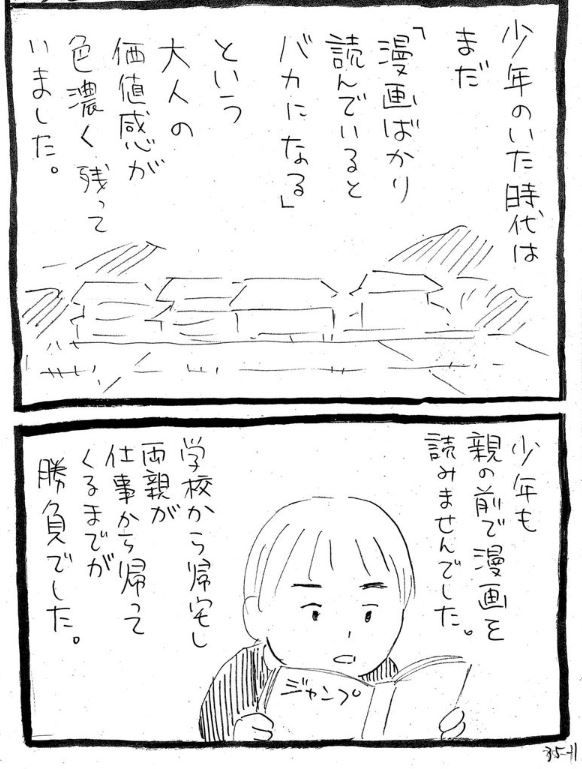 少年のいた時代は
まだ
「漫画ばかり
読んでいると
バカになる」
という
大人の
価値感が
色濃く残って
いました。
少年も
親の前で漫画を
読みませんでした。
学校から帰宅し
両親が
仕事から帰って
くるまでが
勝負でした。
ジャンプ
35-11